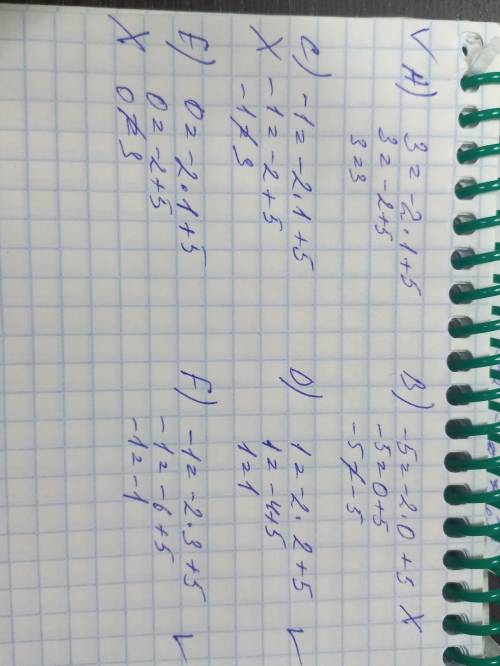 ✓ A) 3 = -2·1+5
3 = -2+5
3=3
B) -5 = -2·0+5 X
-5=0+5
-5≠-5
C) -1 = -2·1+5
X -1 = -2+5
-1≠3
D) 1 = -2·2+5
1 = -4+5
1=1 ✓
E) 0 = -2·1+5
0 = -2+5
X 0≠3
F) -1 = -2·3+5
-1 = -6+5
-1 = -1 ✓